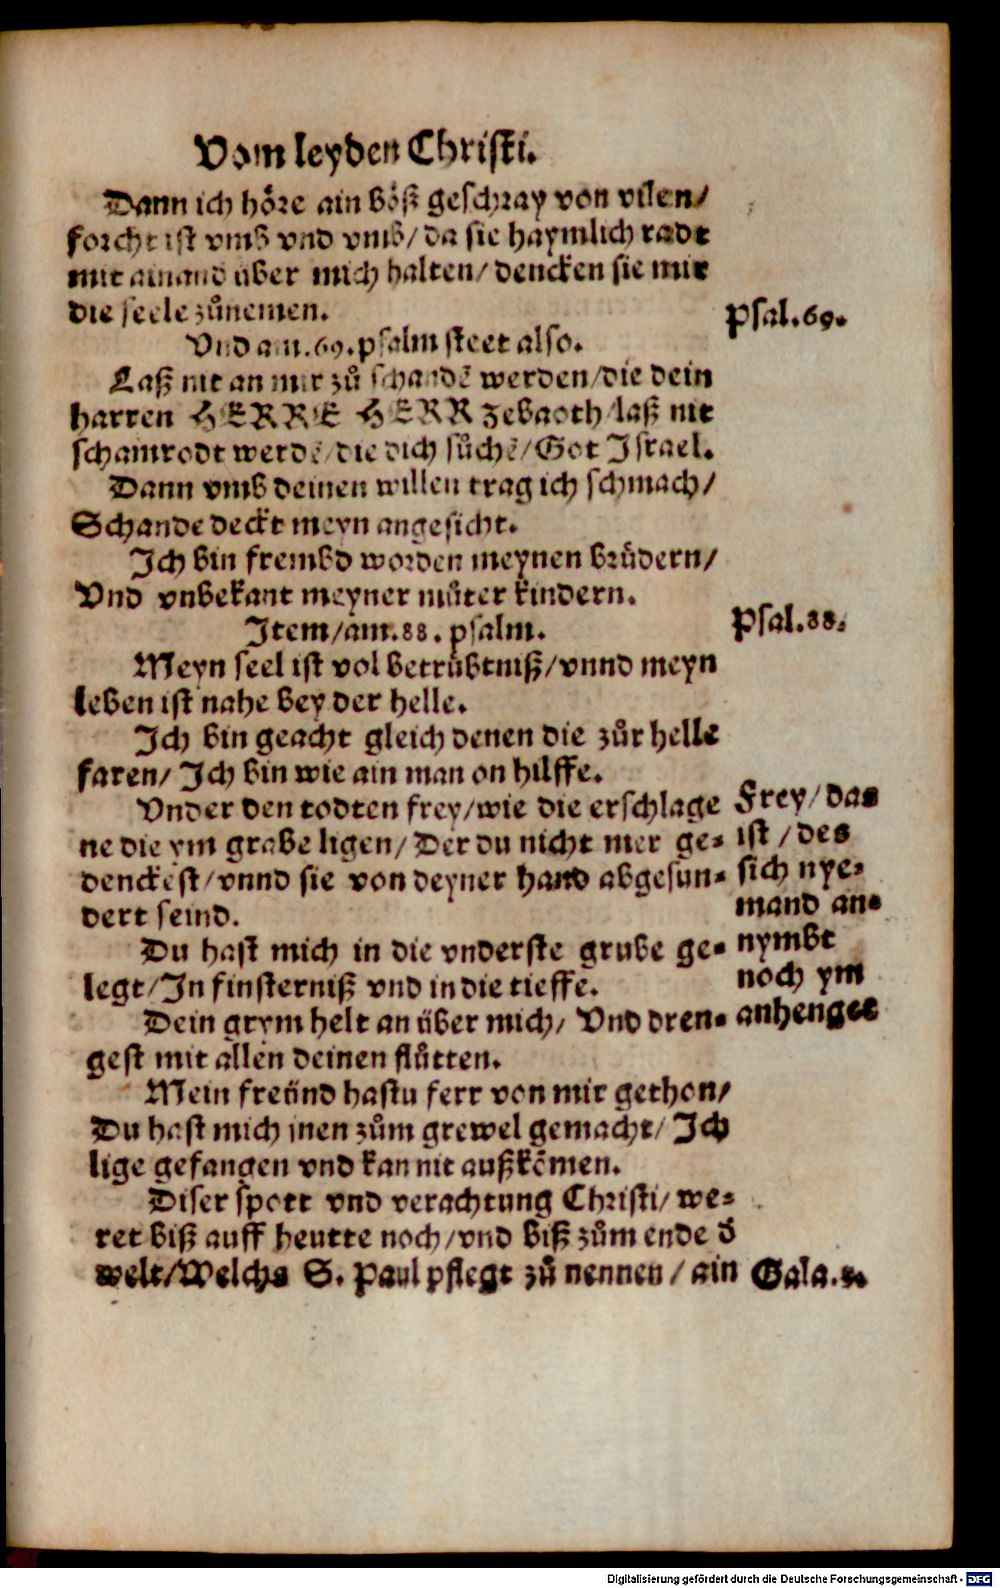 Vom leyden Christi.
Dann ich höre ain böß geschray von vilen/
forcht ist vmb vnd vmb/ da sie haymlich radt
mit ainand über mich halten/ dencken sie mir
die seele zůnemen.
Psal.69.
Vnd am.69.psalm steet also.
Laß nit an mir zů schandẽ werden/die dein
harren HERRE HERR Zebaoth/laß nit
schamrodt werdẽ/die dich sůchẽ/Got Israel.
Dann vmb deinen willen trag ich schmach/
Schande deckt meyn angesicht.
Ich bin frembd worden meynen brüdern/
Vnd vnbekant meyner můter kindern.
Item/am.88. psalm.
Psal.88.
Meyn seel ist vol betrübtniß/vnnd meyn
leben ist nahe bey der helle.
Ich bin geacht gleich denen die zůr helle
faren/ Ich bin wie ain man on hilffe.
Vnder den todten frey/wie die erschlage
ne die ym grabe ligen/ Der du nicht mer ge-
denckest/vnnd sie von deyner hand abgesun-
dert seind.
Frey/das
ist/des
sich nye-
mand an-
nymbt
noch ym
anhenget
Du hast mich in die vnderste grube ge-
legt/In finsterniß vnd in die tieffe.
Dein grym helt an über mich/ Vnd dren-
gest mit allen deinen flůtten.
Mein freünd hastu ferr von mir gethon/
Du hast mich jnen zům grewel gemacht/ Ich
lige gefangen vnd kan nit außkõmen.
Diser spott vnd verachtung Christi/ we-
ret biß auff heutte noch/vnd biß zům ende d̃
welt/Welchs S. Paul pflegt zů nennen/ ain
Gala.
Digitalisierung gefördert durch die Deutsche Forschungsgemeinschaft - DFG